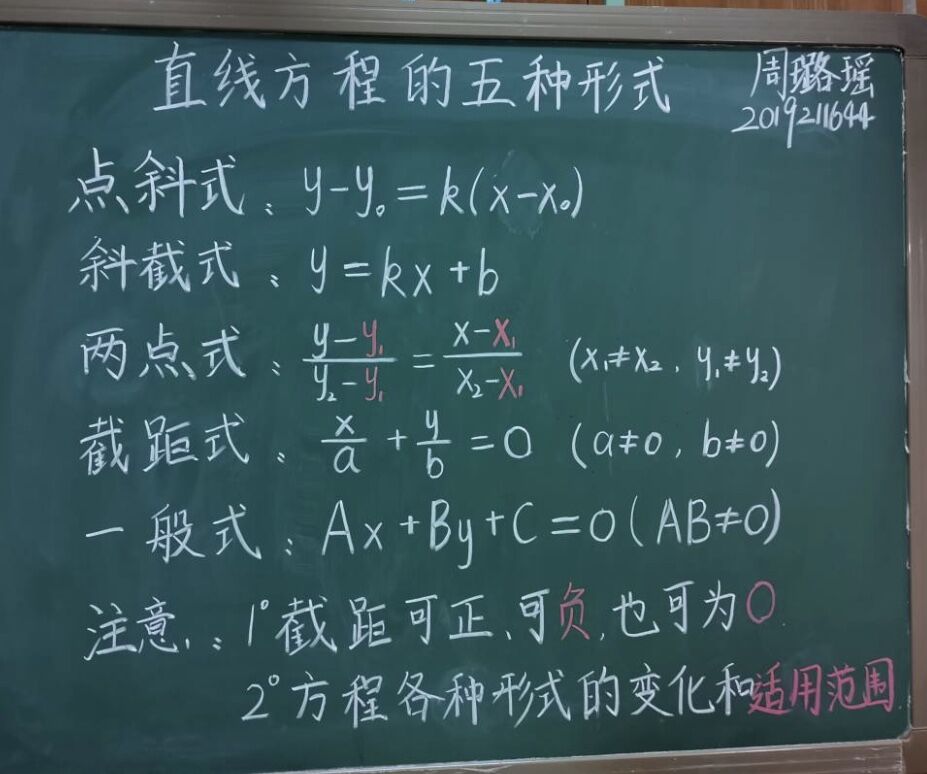 直线方程的五种形式
周璐瑶
2019211644
点斜式：y-y₀=k(x-x₀)
斜截式：y=kx+b
两点式：(y-y₁)/(y₂-y₁)=(x-x₁)/(x₂-x₁) (x₁≠x₂，y₁≠y₂)
截距式：x/a+y/b=0 (a≠0，b≠0)
一般式：Ax+By+C=0(AB≠0)
注意：1°截距可正、可负，也可为0
2°方程各种形式的变化和适用范围